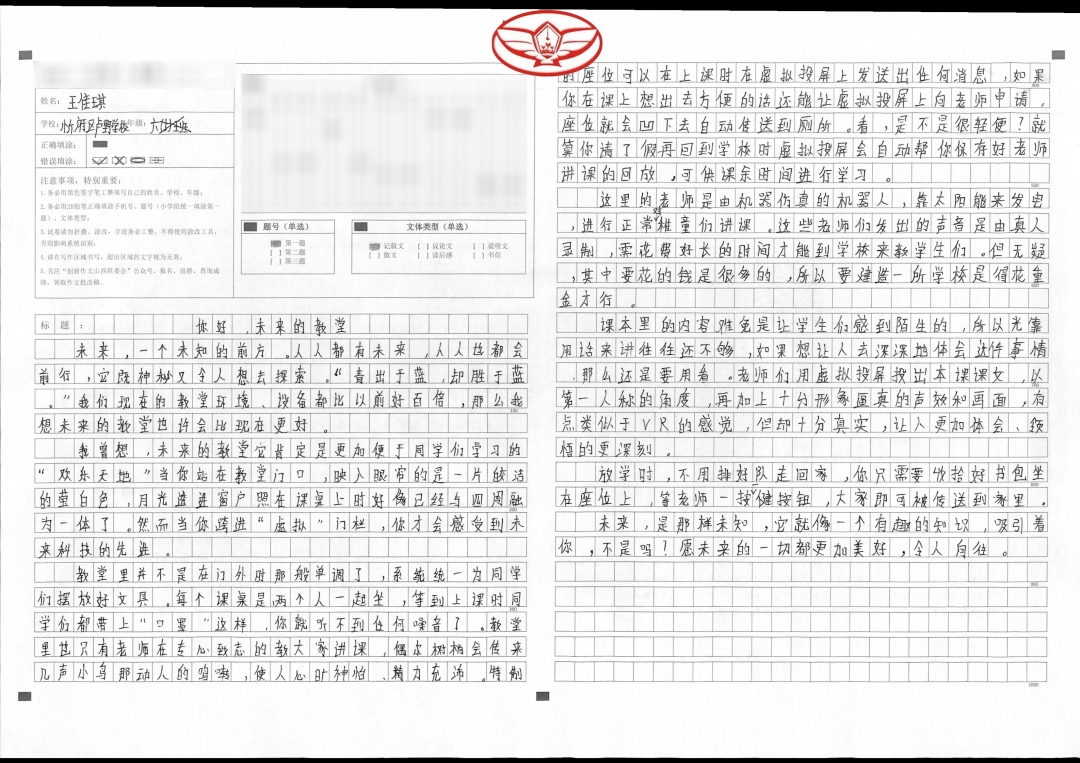 姓名：王佳琪
学校：
年级：六
正确填涂：
错误填涂：
注意事项，特别重要：
1.务必用黑色签字笔工整填写自己的姓名、学校、年级；
2.务必用2B铅笔正确填涂手机号、题号（小学组统一填涂第一题）、文体类型；
3.试卷请勿折叠、涂改，字迹务必工整，不得使用涂改工具，否则影响系统识别；
4.请在写作区域书写，超出区域的文字视为无效；
5.关注“创新作文山西组委会”公众号，报名、进群、查询成绩，领取作文批改稿。
题号（单选）
第一题
[ ] 第二题
[ ] 第三题
文体类型（单选）
记叙文 [ ] 议论文 [ ] 说明文
[ ] 散文 [ ] 读后感 [ ] 书信
标题：你好，未来的教堂
未来，一个未知的前方。人人都有未来，人人也都会
前行，它既神秘又令人想去探索。“青出于蓝，却胜于蓝
。”我们现在的教堂环境、设备都比以前好百倍，那么我
100
想未来的教堂也许会比现在更好。
我曾想，未来的教堂它肯定是更加便于同学们学习的
“欢乐天地”当你站在教堂门口，映入眼帘的是一片皎洁
的莹白色，月光透进窗户照在课桌上时好像已经与四周融
200
为一体了。然而当你跨进“虚拟”门栏，你才会感受到未
来科技的先进。
教堂里并不是在门外时那般单调了，系统统一为同学
们摆放好文具。每个课桌是两个人一起坐，等到上课时同
300
学们都带上“口罩”这样，你就听不到任何噪音了。教堂
里也只有老师在专心致志的教大家讲课，偶尔树梢会传来
几声小鸟那动人的鸣啭，使人心旷神怡、精力充沛。特制
的座位可以在上课时在虚拟投屏上发送出任何消息，如果
400
你在课上想出去方便的话还能让虚拟投屏上向老师申请，
座位就会凹下去自动传送到厕所。看，是不是很轻便？就
算你请了假再回到学校时虚拟投屏会自动帮你保存好老师
讲课的回放，可供课余时间进行学习。
500
这里的老师是由机器伤真的机器人，靠太阳能来发电
，进行正常对维童们讲课。这些老师们发出的声音是由真人
录制，需花费好长的时间才能到学校来教学生们。但无疑
，其中要花的钱是很多的，所以要建造一所学校是得花重
600
金才行。
课本里的内容难免是让学生们感到陌生的，所以光靠
用话来讲往往还不够，如果想让人去深深地体会这件事情
，那么还是要用看。老师们用虚拟投屏投出本课课文，以
700
第一人称的角度，再加上十分形象逼真的声效和画面，有
点类似于VR的感觉，但却十分真实，让人更加体会、领
悟的更深刻。
放学时，不用排好队走回家，你只需要收拾好书包坐
800
在座位上，等老师一按一键按钮，大家即可被传送到家里。
未来，是那样未知，它就像一个有趣的知识，吸引着
你，不是吗？愿未来的一切都更加美好，令人向往。
900
1000